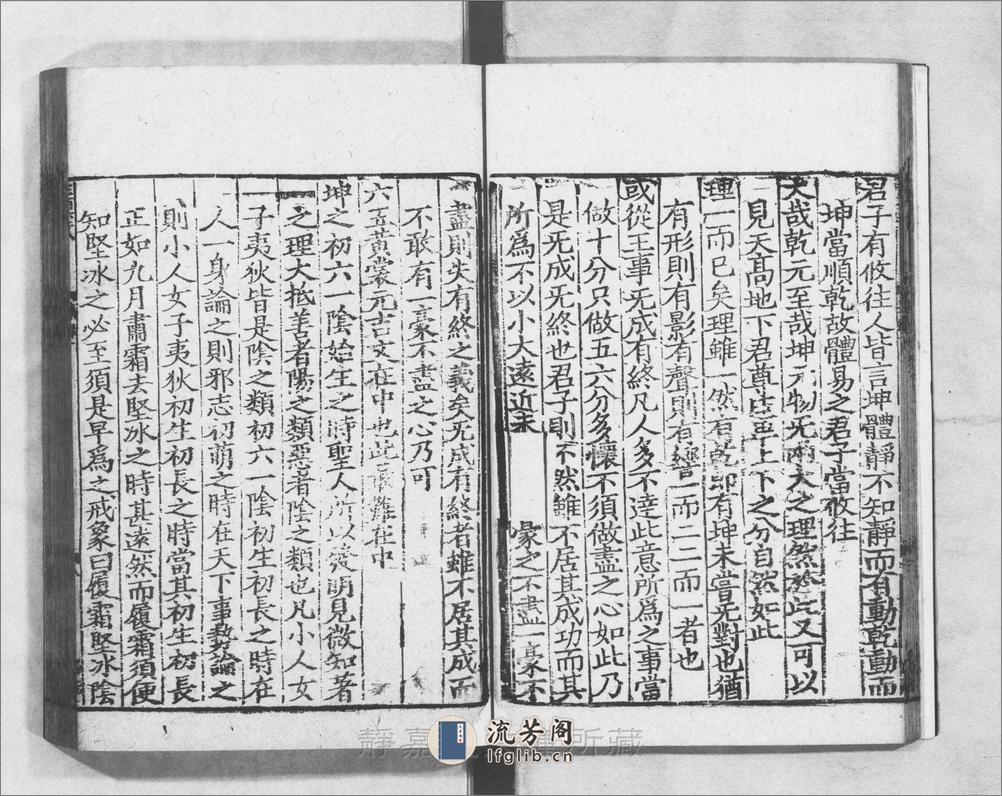 君子有攸往人皆言坤體靜不知靜而有動乾動而
坤當順乾故體易之君子當攸往
大哉乾元至哉坤元物无兩大之理然於此又可以
見天髙地下君尊臣卑上下之分自然如此
理一而已矣理雖一然有乾即有坤未嘗无對也猶
有形則有影有聲則有響一而二二而一者也
或從王事无成有終凡人多不達此意所爲之事當
做十分只做五六分多懷不須做盡之心如此乃
是无成无終也君子則不然雖不居其成功而其
所爲不以小大遠近未 毫之不盡一毫不
盡則失有終之義矣无成有終者雖不居其成而
不敢有一毫不盡之心乃可
六五黄裳元吉文在中也此 難在中
坤之初六一隂始生之時聖人所以發明見微知著
之理大抵善者陽之類惡者隂之類也凡小人女
子夷狄皆是隂之類初六一隂初生初長之時在
人一身論之則邪志初萌之時在天下事勢論之
則小人女子夷狄初生初長之時當其初生初長
正如九月肅霜去堅冰之時甚遠然而履霜須便
知堅冰之必至須是早爲之戒象曰履霜堅冰隂
靜嘉 所藏
流芳阁
lfglib.cn